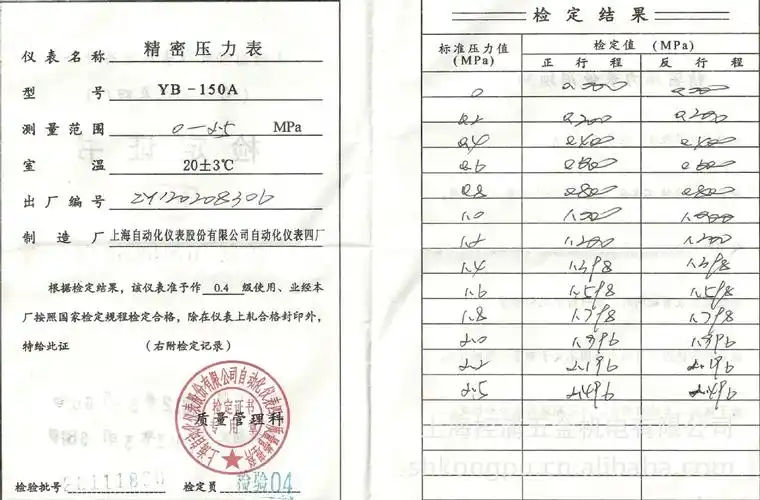 仪表名称 精密压力表
型号 YB-150A
测量范围 0-2.5 MPa
室温 20±3℃
出厂编号 ZY120208306
制造厂 上海自动化仪表股份有限公司自动化仪表四厂
根据检定结果，该仪表准予作 0.4 级使用、业经本
厂按照国家检定规程检定合格，除在仪表上轧合格封印外，
特给此证 （右附检定记录）
检定证书
专用章
质量管理科
检验批号
检定员 检验04
检定结果
标准压力值 (MPa) 检定值 (MPa)
正行程 反行程
0 0.000 0.000
0.2 0.200 0.200
0.4 0.400 0.400
0.6 0.600 0.600
0.8 0.800 0.800
1.0 1.000 1.000
1.2 1.200 1.200
1.4 1.398 1.398
1.6 1.598 1.598
1.8 1.798 1.798
2.0 1.996 1.996
2.2 2.196 2.196
2.5 2.496 2.496
shkongpu.cn.alibaba.com